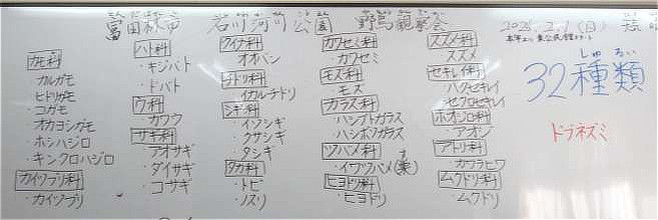 富田林市 石川河川公園 野鳥観察会
2026.2.1(日)
カモ科
・カルガモ
・ヒドリガモ
・コガモ
・オカヨシガモ
・ホシハジロ
・キンクロハジロ
カイツブリ科
・カイツブリ
ハト科
・キジバト
・ドバト
ウ科
・カワウ
サギ科
・アオサギ
・ダイサギ
・コサギ
クイナ科
・オオバン
チドリ科
・イカルチドリ
シギ科
・イソシギ
・クサシギ
・タシギ
タカ科
・トビ
・ノスリ
カワセミ科
・カワセミ
モズ科
・モズ
カラス科
・ハシブトガラス
・ハシボソガラス
ツバメ科
・イワツバメ(巣)
ヒヨドリ科
・ヒヨドリ
スズメ科
・スズメ
セキレイ科
・ハクセキレイ
・セグロセキレイ
ホオジロ科
・アオジ
アトリ科
・カワラヒワ
ムクドリ科
・ムクドリ
しゅ るい
32種類
ドブネズミ